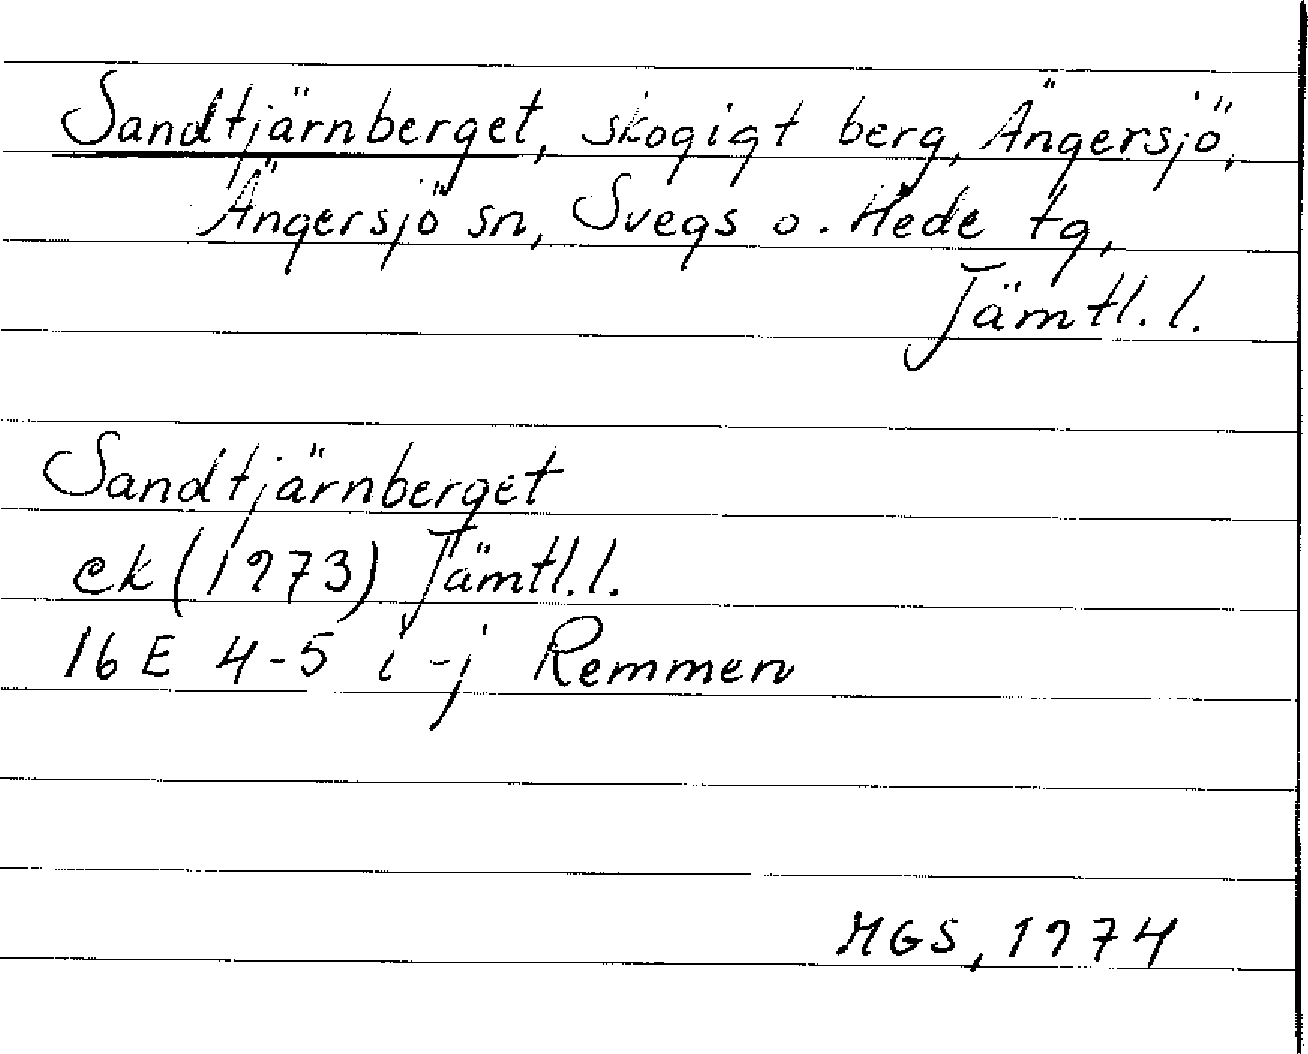 Sandtjärnberget, skogigt berg, Ängersjö,
Ängersjö sn, Svegs o. Hede tg,
Jämtl. l.
Sandtjärnberget
ek (1973) Jämtl. l.
16 E 4-5 i-j Remmen
MGS, 1974